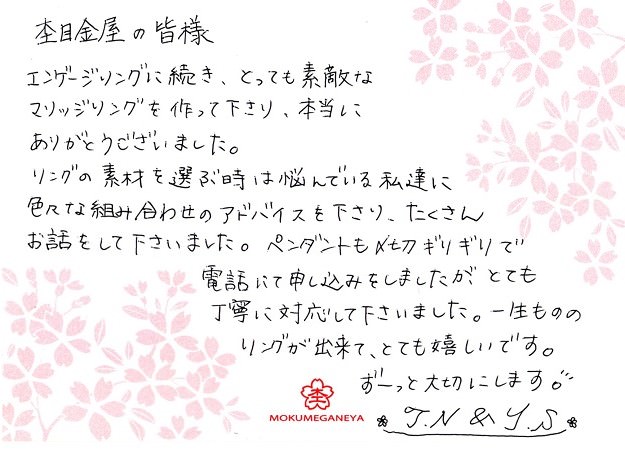 杢目金屋の皆様
エンゲージリングに続き、とっても素敵な
マリッジリングを作って下さり、本当に
ありがとうございました。
リングの素材を選ぶ時は悩んでいる私達に
色々な組み合わせのアドバイスを下さり、たくさん
お話をして下さいました。ペンダントも〆切ギリギリで
電話にて申し込みをしましたが とても
丁寧に対応して下さいました。一生ものの
リングが出来て、とても嬉しいです。
ずーっと大切にします。
T.N & Y.S
杢
MOKUMEGANEYA